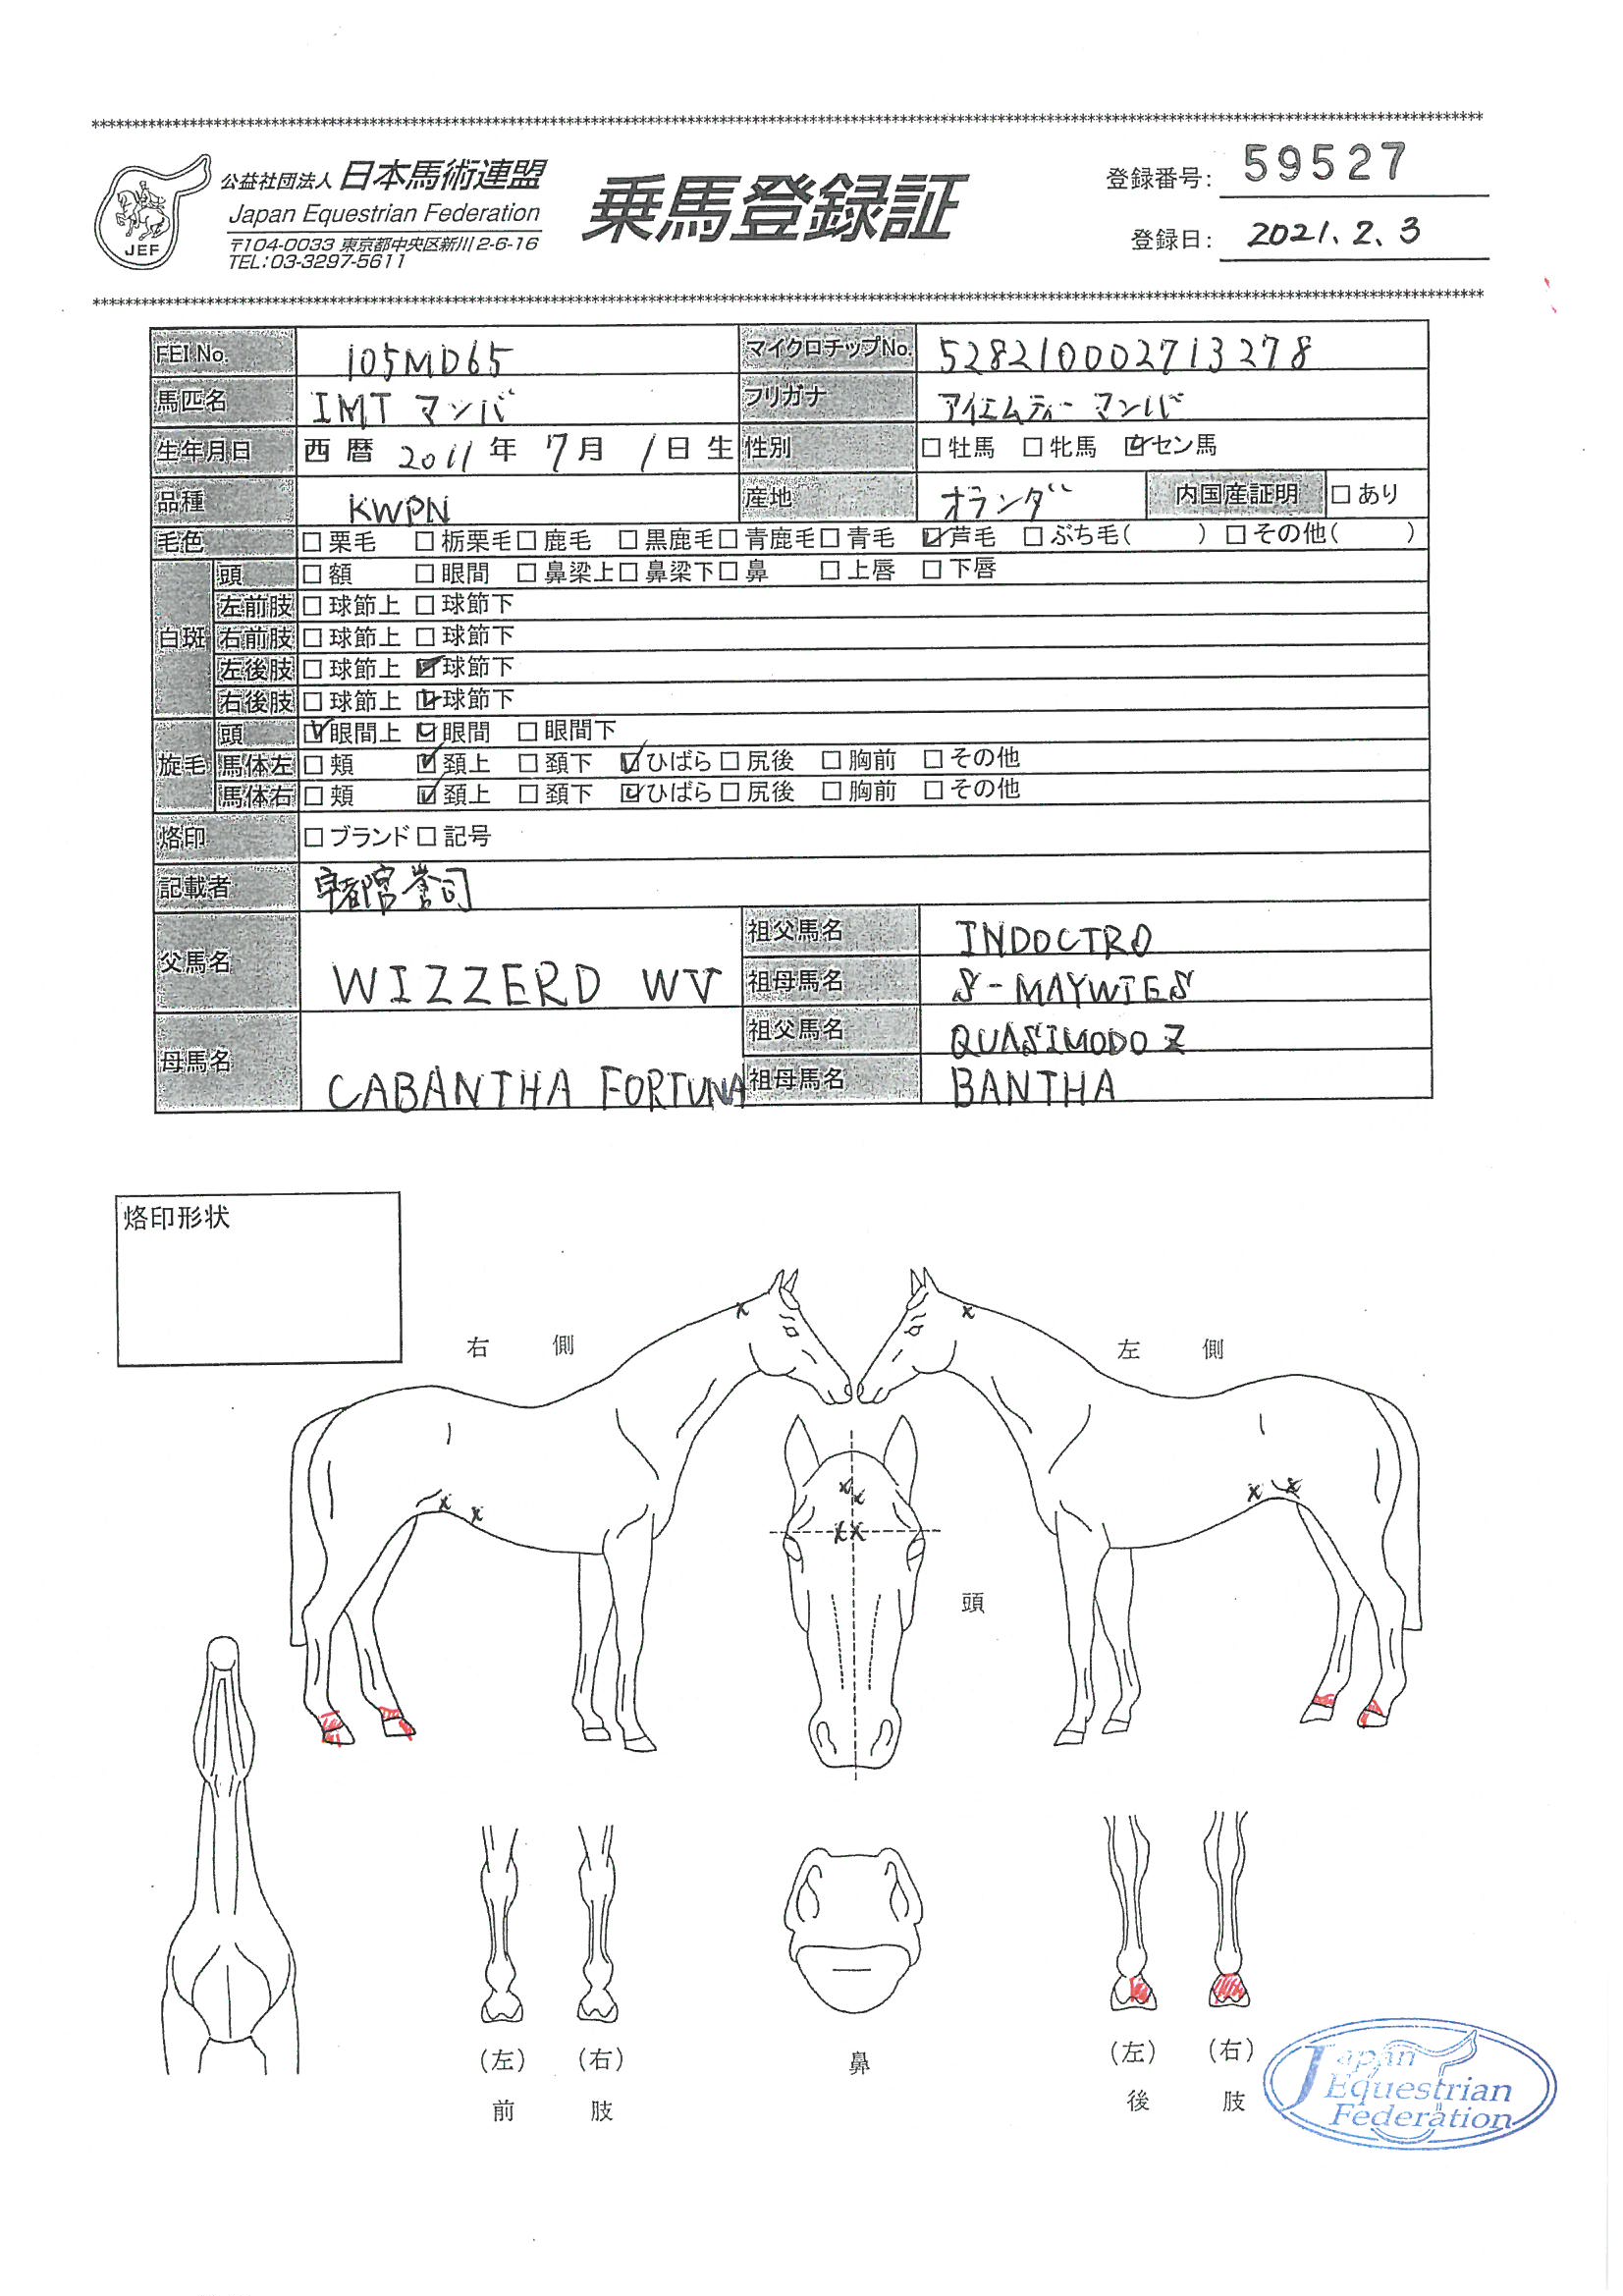 公益社団法人 日本馬術連盟
Japan Equestrian Federation
〒104-0033 東京都中央区新川2-6-16
TEL:03-3297-5611
JEF
乗馬登録証
登録番号: 59527
登録日: 2021.2.3
FEI No. 105MD65 マイクロチップNo. 528210002713278
馬匹名 IMT マンバ フリガナ アイエムティー マンバ
生年月日 西暦 2011年 7月 1日生 性別 □牡馬 □牝馬 ☑セン馬
品種 KWPN 産地 オランダ 内国産証明 □あり
毛色 □栗毛 □栃栗毛 □鹿毛 □黒鹿毛 □青鹿毛 □青毛 ☑芦毛 □ぶち毛( ) □その他( )
白斑 頭 □額 □眼間 □鼻梁上 □鼻梁下 □鼻 □上唇 □下唇
左前肢 □球節上 □球節下
右前肢 □球節上 □球節下
左後肢 □球節上 ☑球節下
右後肢 □球節上 ☑球節下
旋毛 頭 ☑眼間上 ☑眼間 □眼間下
馬体左 □頬 ☑頚上 □頚下 ☑ひばら □尻後 □胸前 □その他
馬体右 □頬 ☑頚上 □頚下 ☑ひばら □尻後 □胸前 □その他
烙印 □ブランド □記号
記載者 宇都宮誉司
父馬名 WIZZERD WV 祖父馬名 INDOCTRO
祖母馬名 S-MAYWIES
母馬名 CABANTHA FORTUNA 祖父馬名 QUASIMODO Z
祖母馬名 BANTHA
烙印形状
右側 左側
頭
(左) (右) 鼻 (左) (右)
前肢 後肢
Japan
Equestrian
Federation